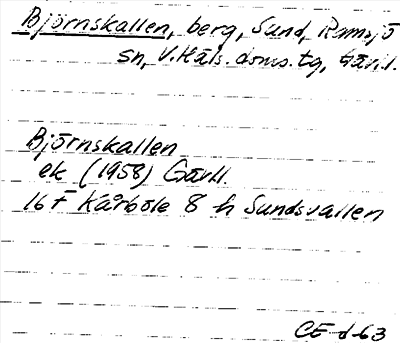 Björnskallen, berg, Sund, Ramsjö
sn, V. Häls. doms. tg, Gävl.
Björnskallen
ek (1958) Gävll
16 F Kårböle 8 h Sundsvallen
CE -d-63